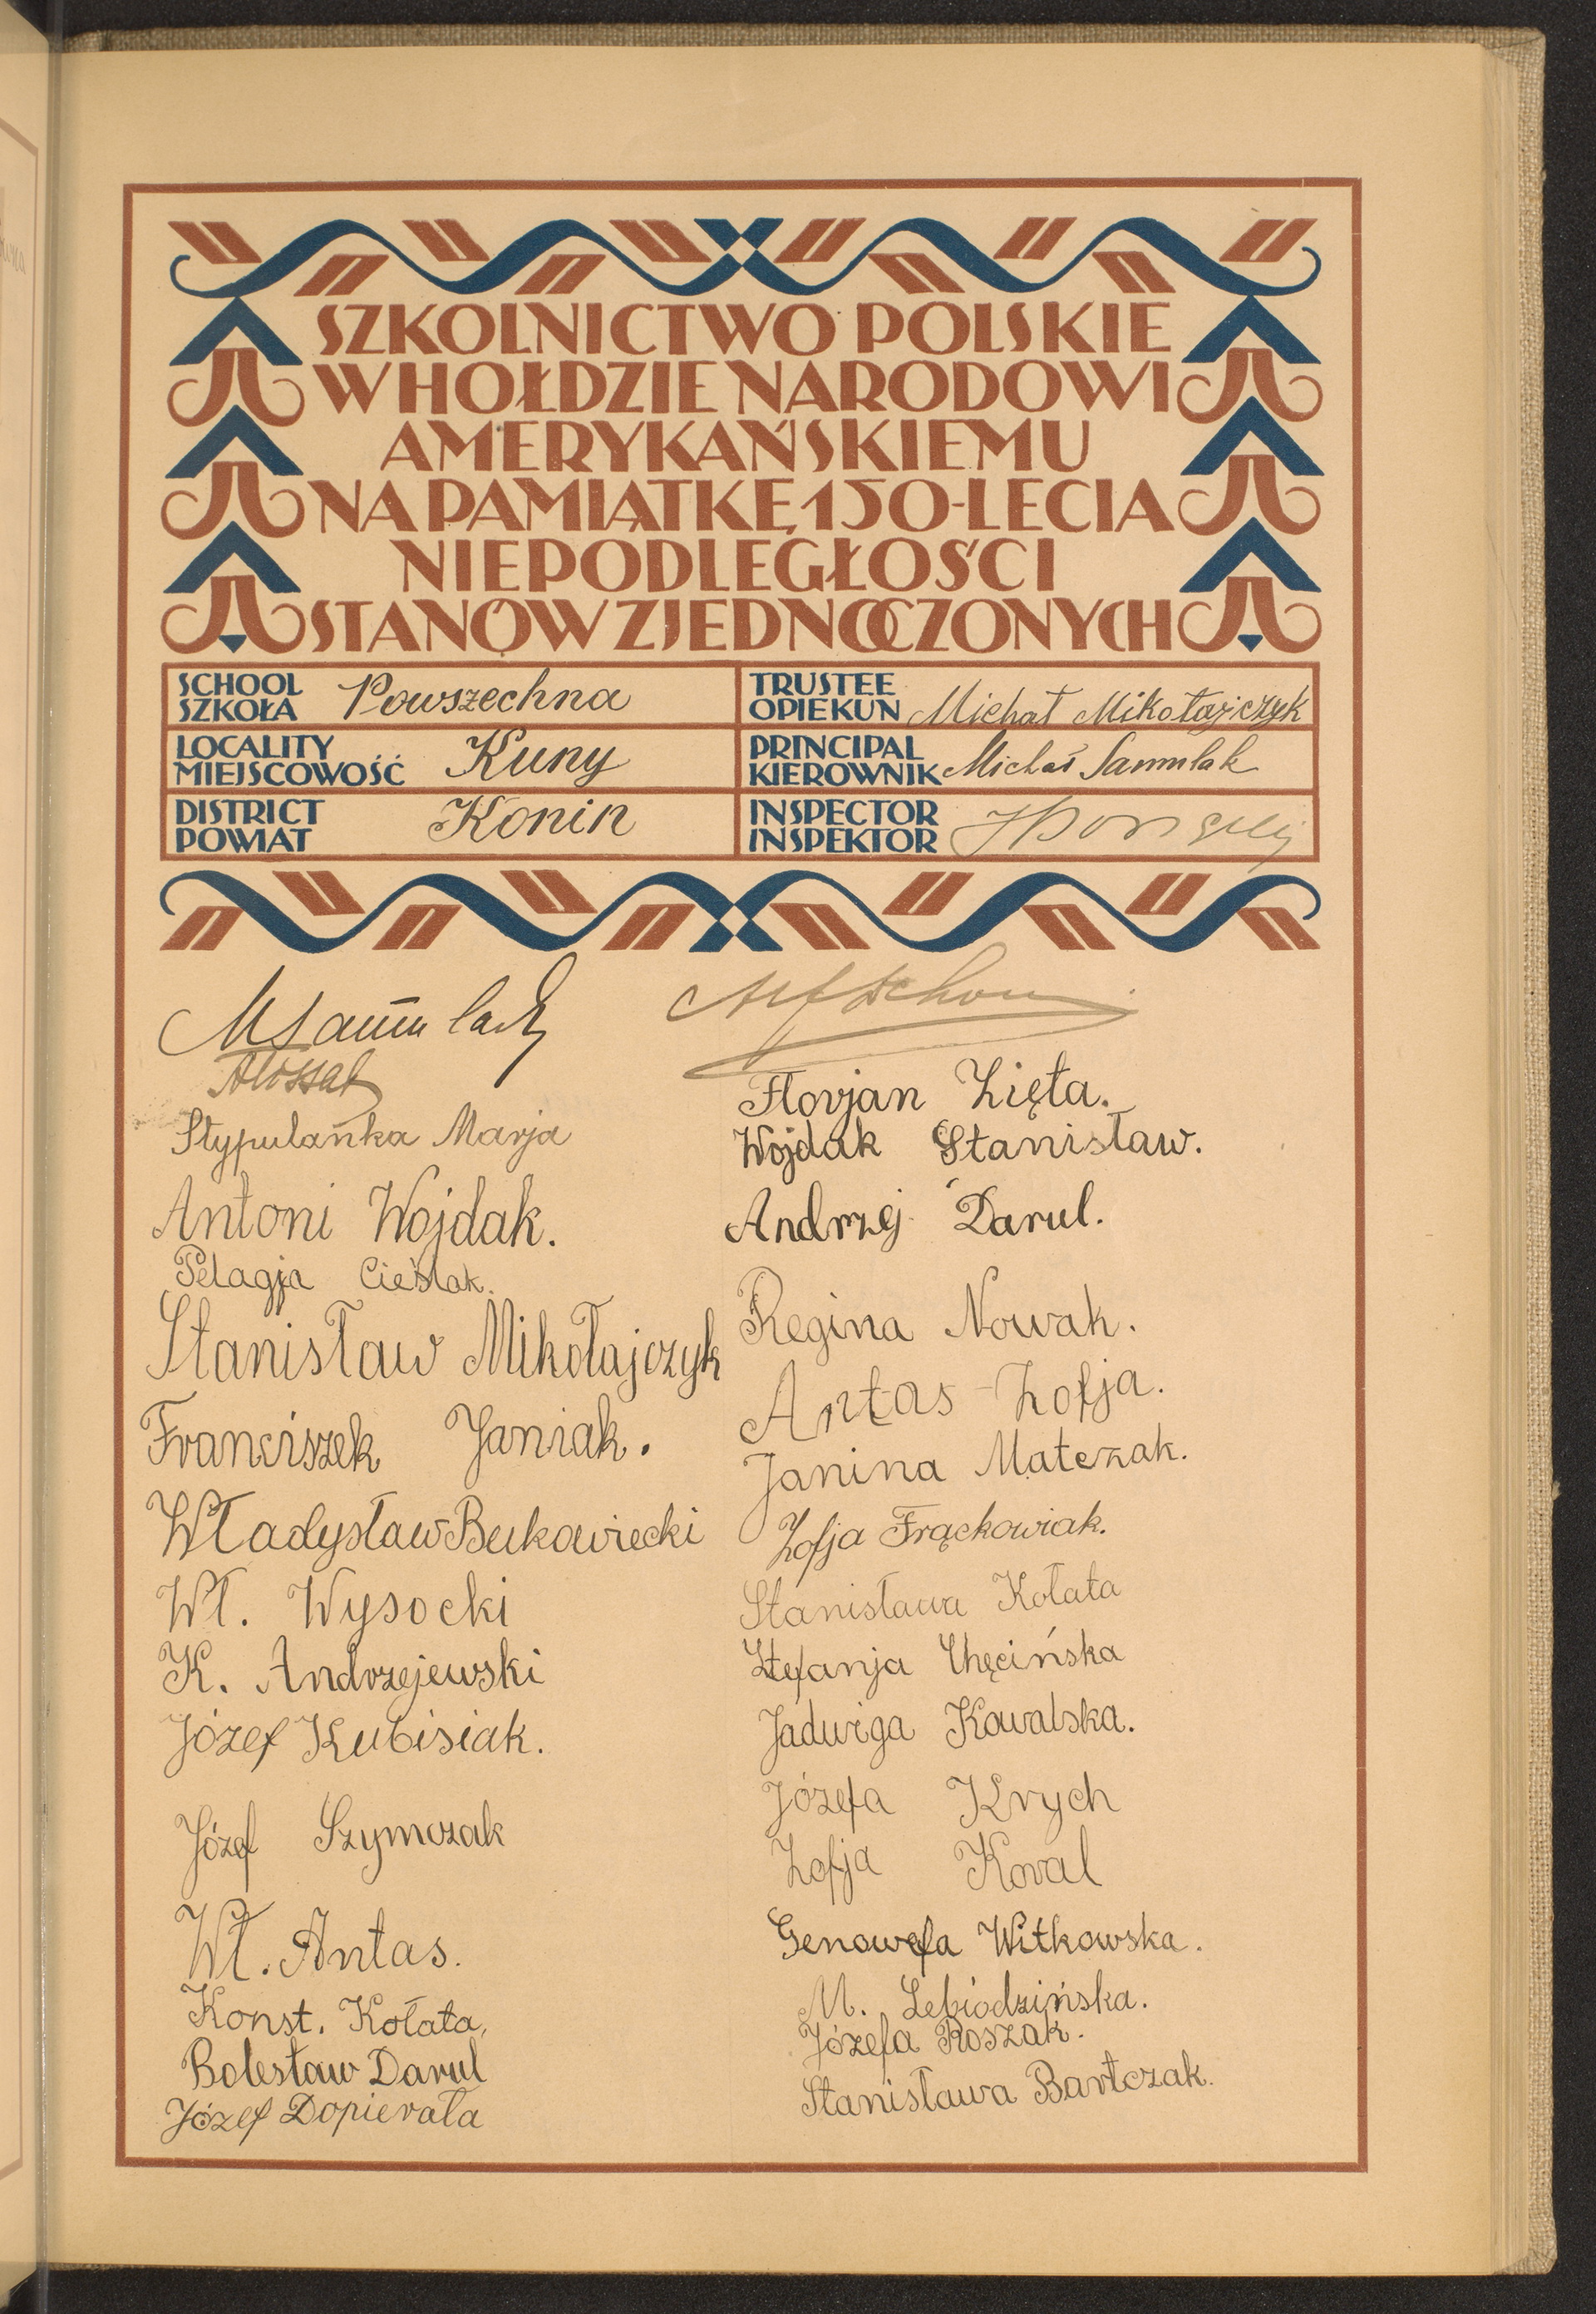 SZKOLNICTWO POLSKIE
W HOŁDZIE NARODOWI
AMERYKAŃSKIEMU
NA PAMIĄTKĘ 150-LECIA
NIEPODLEGŁOŚCI
STANÓW ZJEDNOCZONYCH
SCHOOL
SZKOŁA Powszechna
TRUSTEE
OPIEKUN Michał Mikołajczyk
LOCALITY
MIEJSCOWOŚĆ Kuny
PRINCIPAL
KIEROWNIK Michał
DISTRICT
POWIAT Konin
INSPECTOR
INSPEKTOR
Stypulańka Marja
Antoni Wojdak.
Pelagja Cieślak.
Stanisław Mikołajczyk
Franciszek Janiak.
Władysław Bukowiecki
Wł. Wysocki
K. Andrzejewski
Józef Kubisiak.
Józef Szymczak
Wł. Antas.
Konst. Kołata,
Bolesław Darul
Józef Dopierała
Florjan Zięta.
Wojdak Stanisław.
Andrzej Darul.
Regina Nowak.
Antas Zofja.
Janina Matczak.
Zofja Frąckowiak.
Stanisława Kołata
Stefanja Chęcińska
Jadwiga Kowalska.
Józefa Krych
Zofja Kowal
Genowefa Witkowska.
M. Lebiodzińska.
Józefa Roszak.
Stanisława Bartczak.